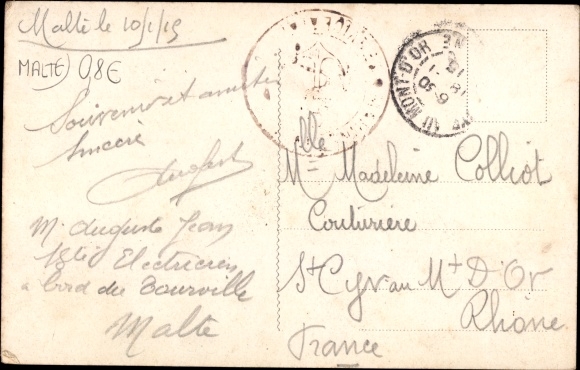 Malte le 10/1/15
MALTE) 0,8€
Souvenir et amitié
Sincère
M. Auguste Jean
Electricien
a bord du Tourville
Malte
Mlle Madeleine Colliot
Couturière
St Cyr au Mt D'Or
Rhône
France
AU MONT-D'OR